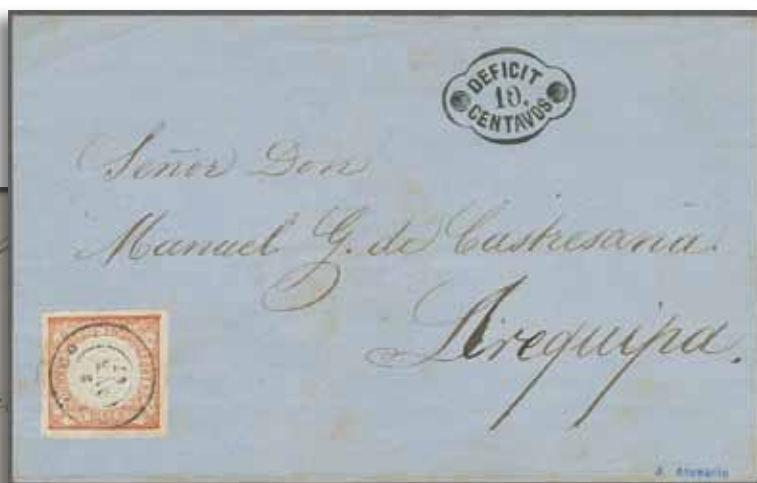 DEFICIT
10.
CENTAVOS
Señor Don
Manuel G. de Castresana.
Arequipa.